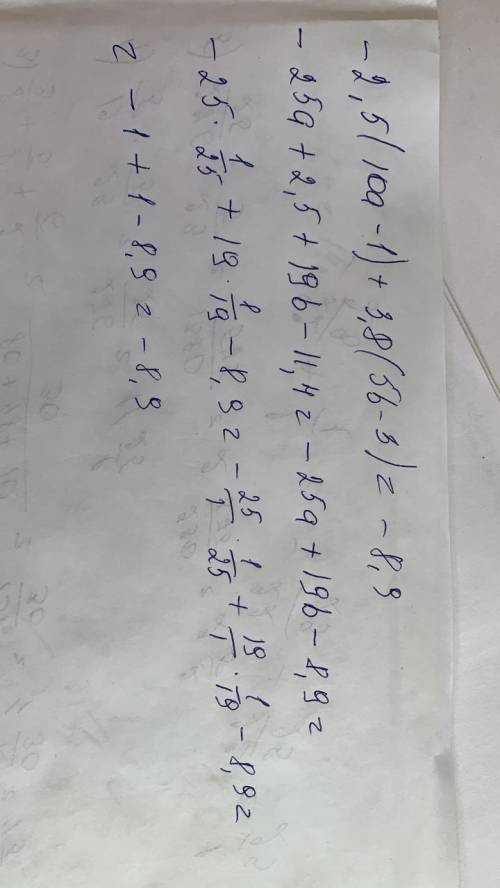 - 2,5(10a - 1) + 3,8(5b - 3) = - 8,9
- 25a + 2,5 + 19b - 11,4 = - 25a + 19b - 8,9 =
- 25 · 1/25 + 19 · 1/19 - 8,9 = - 25/1 · 1/25 + 19/1 · 1/19 - 8,9 =
= - 1 + 1 - 8,9 = - 8,9